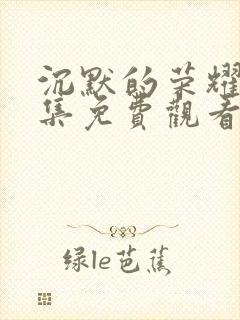 沉默的荣耀
集免費觀看
绿le芭蕉